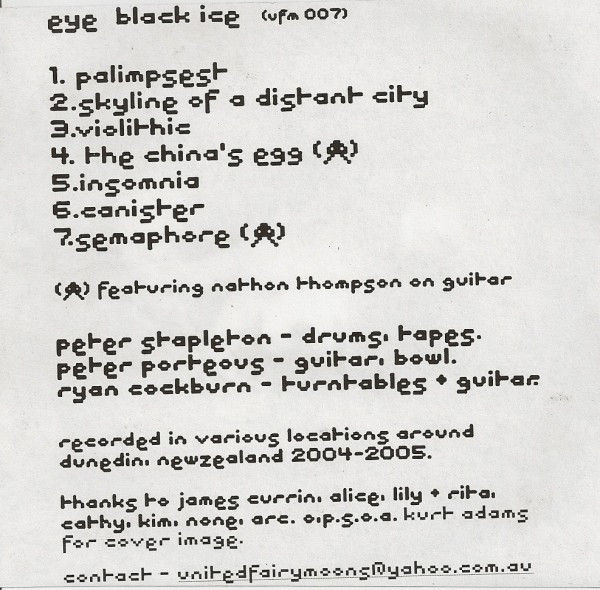 eye black ice (ufm 007)
1. palimpsest
2.skyline of a distant city
3.violithic
4. the china's egg (�)
5.insomnia
6.canister
7.semaphore (�)
(�) featuring nathan thompson on guitar
peter stapleton - drums, tapes.
peter porteous - guitar, bowl.
ryan cockburn - turntables + guitar.
recorded in various locations around
dunedin, newzealand 2004-2005.
thanks to james currin, alice, lily + rita,
cathy, kim, none, arc. o.p.s.o.a. kurt adams
for cover image.
contact - unitedfairymoons@yahoo.com.au